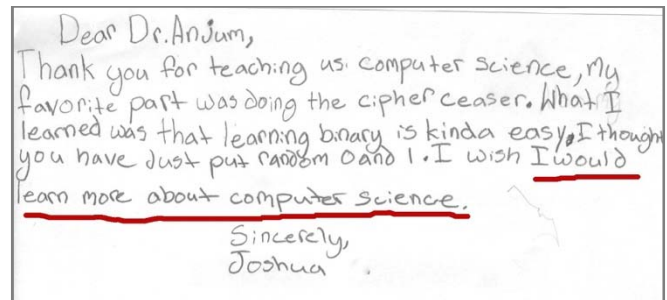 Dear Dr. Anjum,
Thank you for teaching us computer science, My
favorite part was doing the cipher ceaser. What I
learned was that learning binary is kinda easy, I thought
you have Just put random 0 and 1. I wish I would
learn more about computer science.
Sincerely,
Joshua